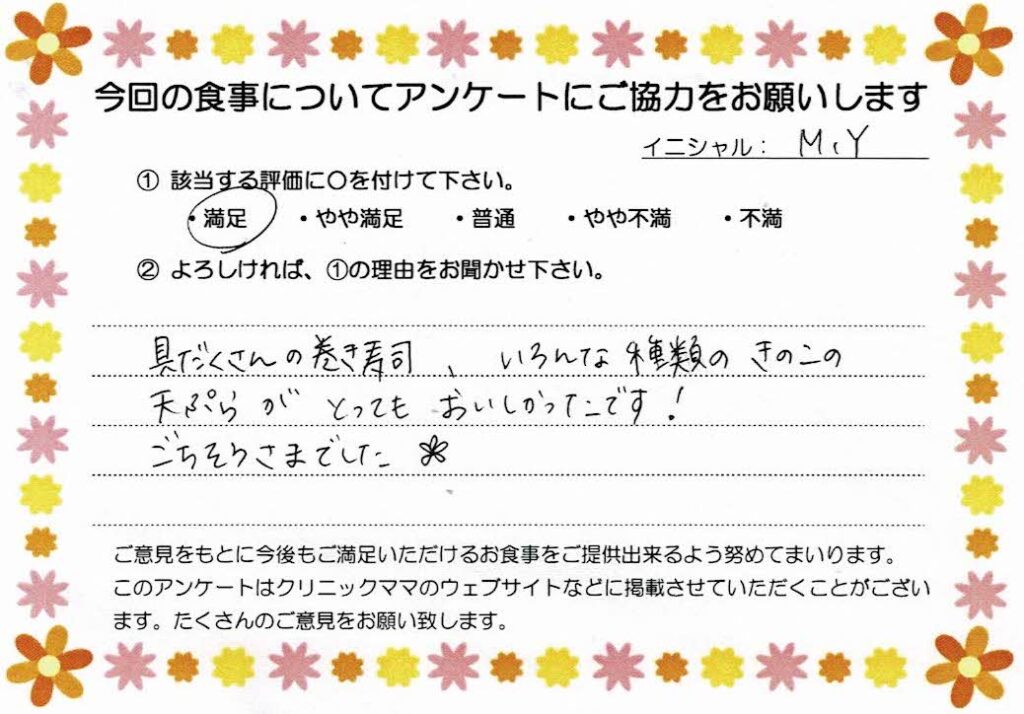 今回の食事についてアンケートにご協力をお願いします
イニシャル： M、Y
① 該当する評価に〇を付けて下さい。
・満足 ・やや満足 ・普通 ・やや不満 ・不満
② よろしければ、①の理由をお聞かせ下さい。
具だくさんの巻き寿司、いろんな種類のきのこの
天ぷらが とっても おいしかったです！
ごちそうさまでした
ご意見をもとに今後もご満足いただけるお食事をご提供出来るよう努めてまいります。
このアンケートはクリニックママのウェブサイトなどに掲載させていただくことがござい
ます。たくさんのご意見をお願い致します。